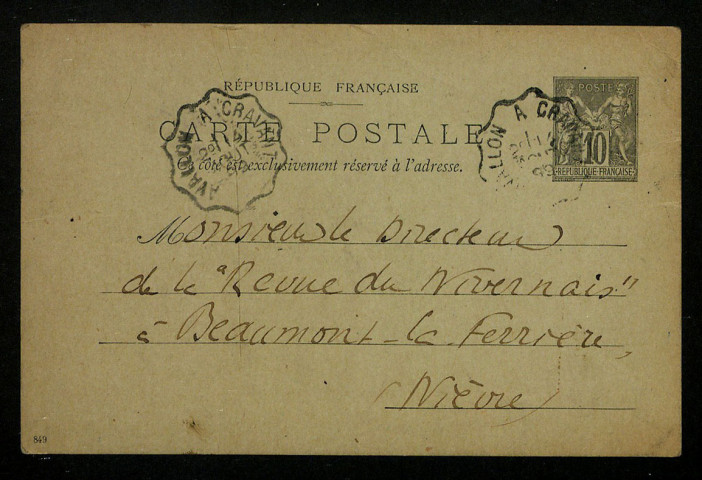 RÉPUBLIQUE FRANÇAISE
CARTE POSTALE
Ce côté est exclusivement réservé à l'adresse.
AVALLON A CRAVANT
AVALLON A CRAVANT
POSTE
10
REPUBLIQUE FRANÇAISE
Monsieur le Directeur
de la "Revue du Nivernais"
à Beaumont-la Ferrière,
(Nièvre)
849